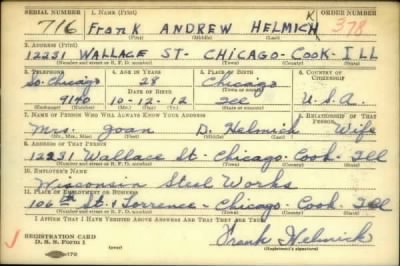 SERIAL NUMBER 1. NAME (Print) ORDER NUMBER
716 Frank ANDREW HELMICH K 378
(First) (Middle) (Last)
2. ADDRESS (Print)
12231 WALLACE ST- CHICAGO- COOK- ILL
(Number and street or R. F. D. number) (Town) (County) (State)
3. TELEPHONE 4. AGE IN YEARS 5. PLACE OF BIRTH 6. COUNTRY OF CITIZENSHIP
So. Chicago 28 Chicago
DATE OF BIRTH (Town or county)
9140 10-12-12 Ill U.S.A.
(Exchange) (Number) (Mo.) (Day) (Yr.) (State or country)
7. NAME OF PERSON WHO WILL ALWAYS KNOW YOUR ADDRESS 8. RELATIONSHIP OF THAT PERSON
Mrs. Joan D. Helmick Wife
(Mr., Mrs., Miss) (First) (Middle) (Last)
9. ADDRESS OF THAT PERSON
12231 Wallace St- Chicago- Cook- Ill
(Number and street or R. F. D. number) (Town) (County) (State)
10. EMPLOYER'S NAME
Wisconsin Steel Works
11. PLACE OF EMPLOYMENT OR BUSINESS
106th St. & Torrence- Chicago- Cook- Ill
(Number and street or R. F. D. number) (Town) (County) (State)
I AFFIRM THAT I HAVE VERIFIED ABOVE ANSWERS AND THAT THEY ARE TRUE.
REGISTRATION CARD
D. S. S. Form 1 Frank Helmick
(Registrant's signature)